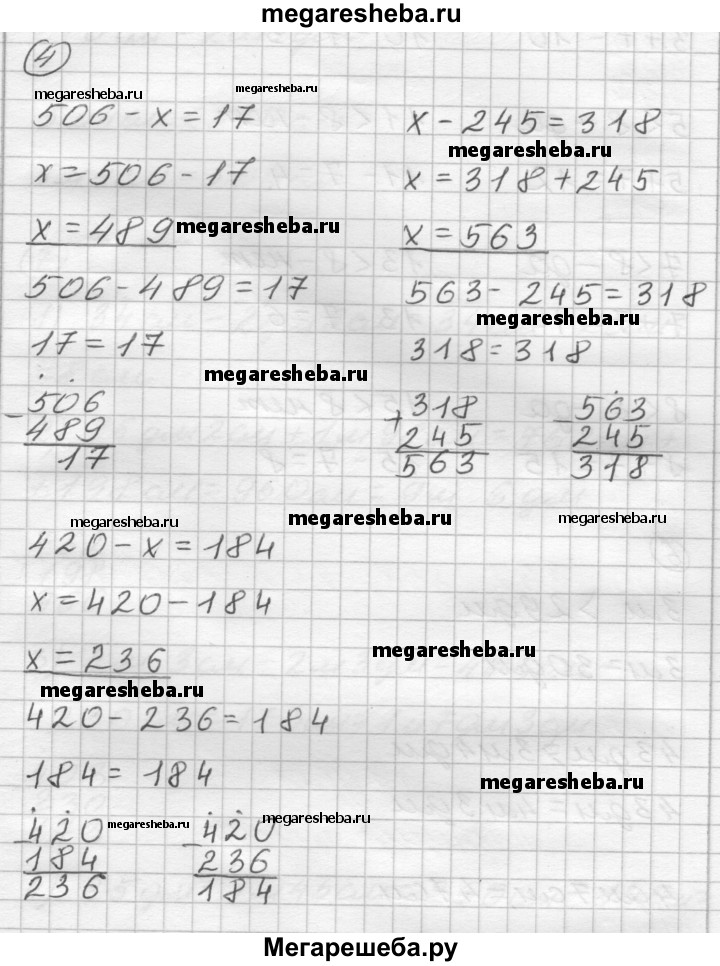 megaresheba.ru
4
megaresheba.ru megaresheba.ru
506 - x = 17
x = 506 - 17
x = 489 megaresheba.ru
506 - 489 = 17
17 = 17
megaresheba.ru
- 506
489
17
x - 245 = 318
megaresheba.ru
x = 318 + 245
x = 563
563 - 245 = 318
megaresheba.ru
318 = 318
+ 318
245
563
- 563
245
318
megaresheba.ru megaresheba.ru megaresheba.ru
420 - x = 184
x = 420 - 184
x = 236 megaresheba.ru
megaresheba.ru
420 - 236 = 184
184 = 184 megaresheba.ru
- 420
184
236
megaresheba.ru
- 420
236
184
megaresheba.ru
Мегарешеба.ру